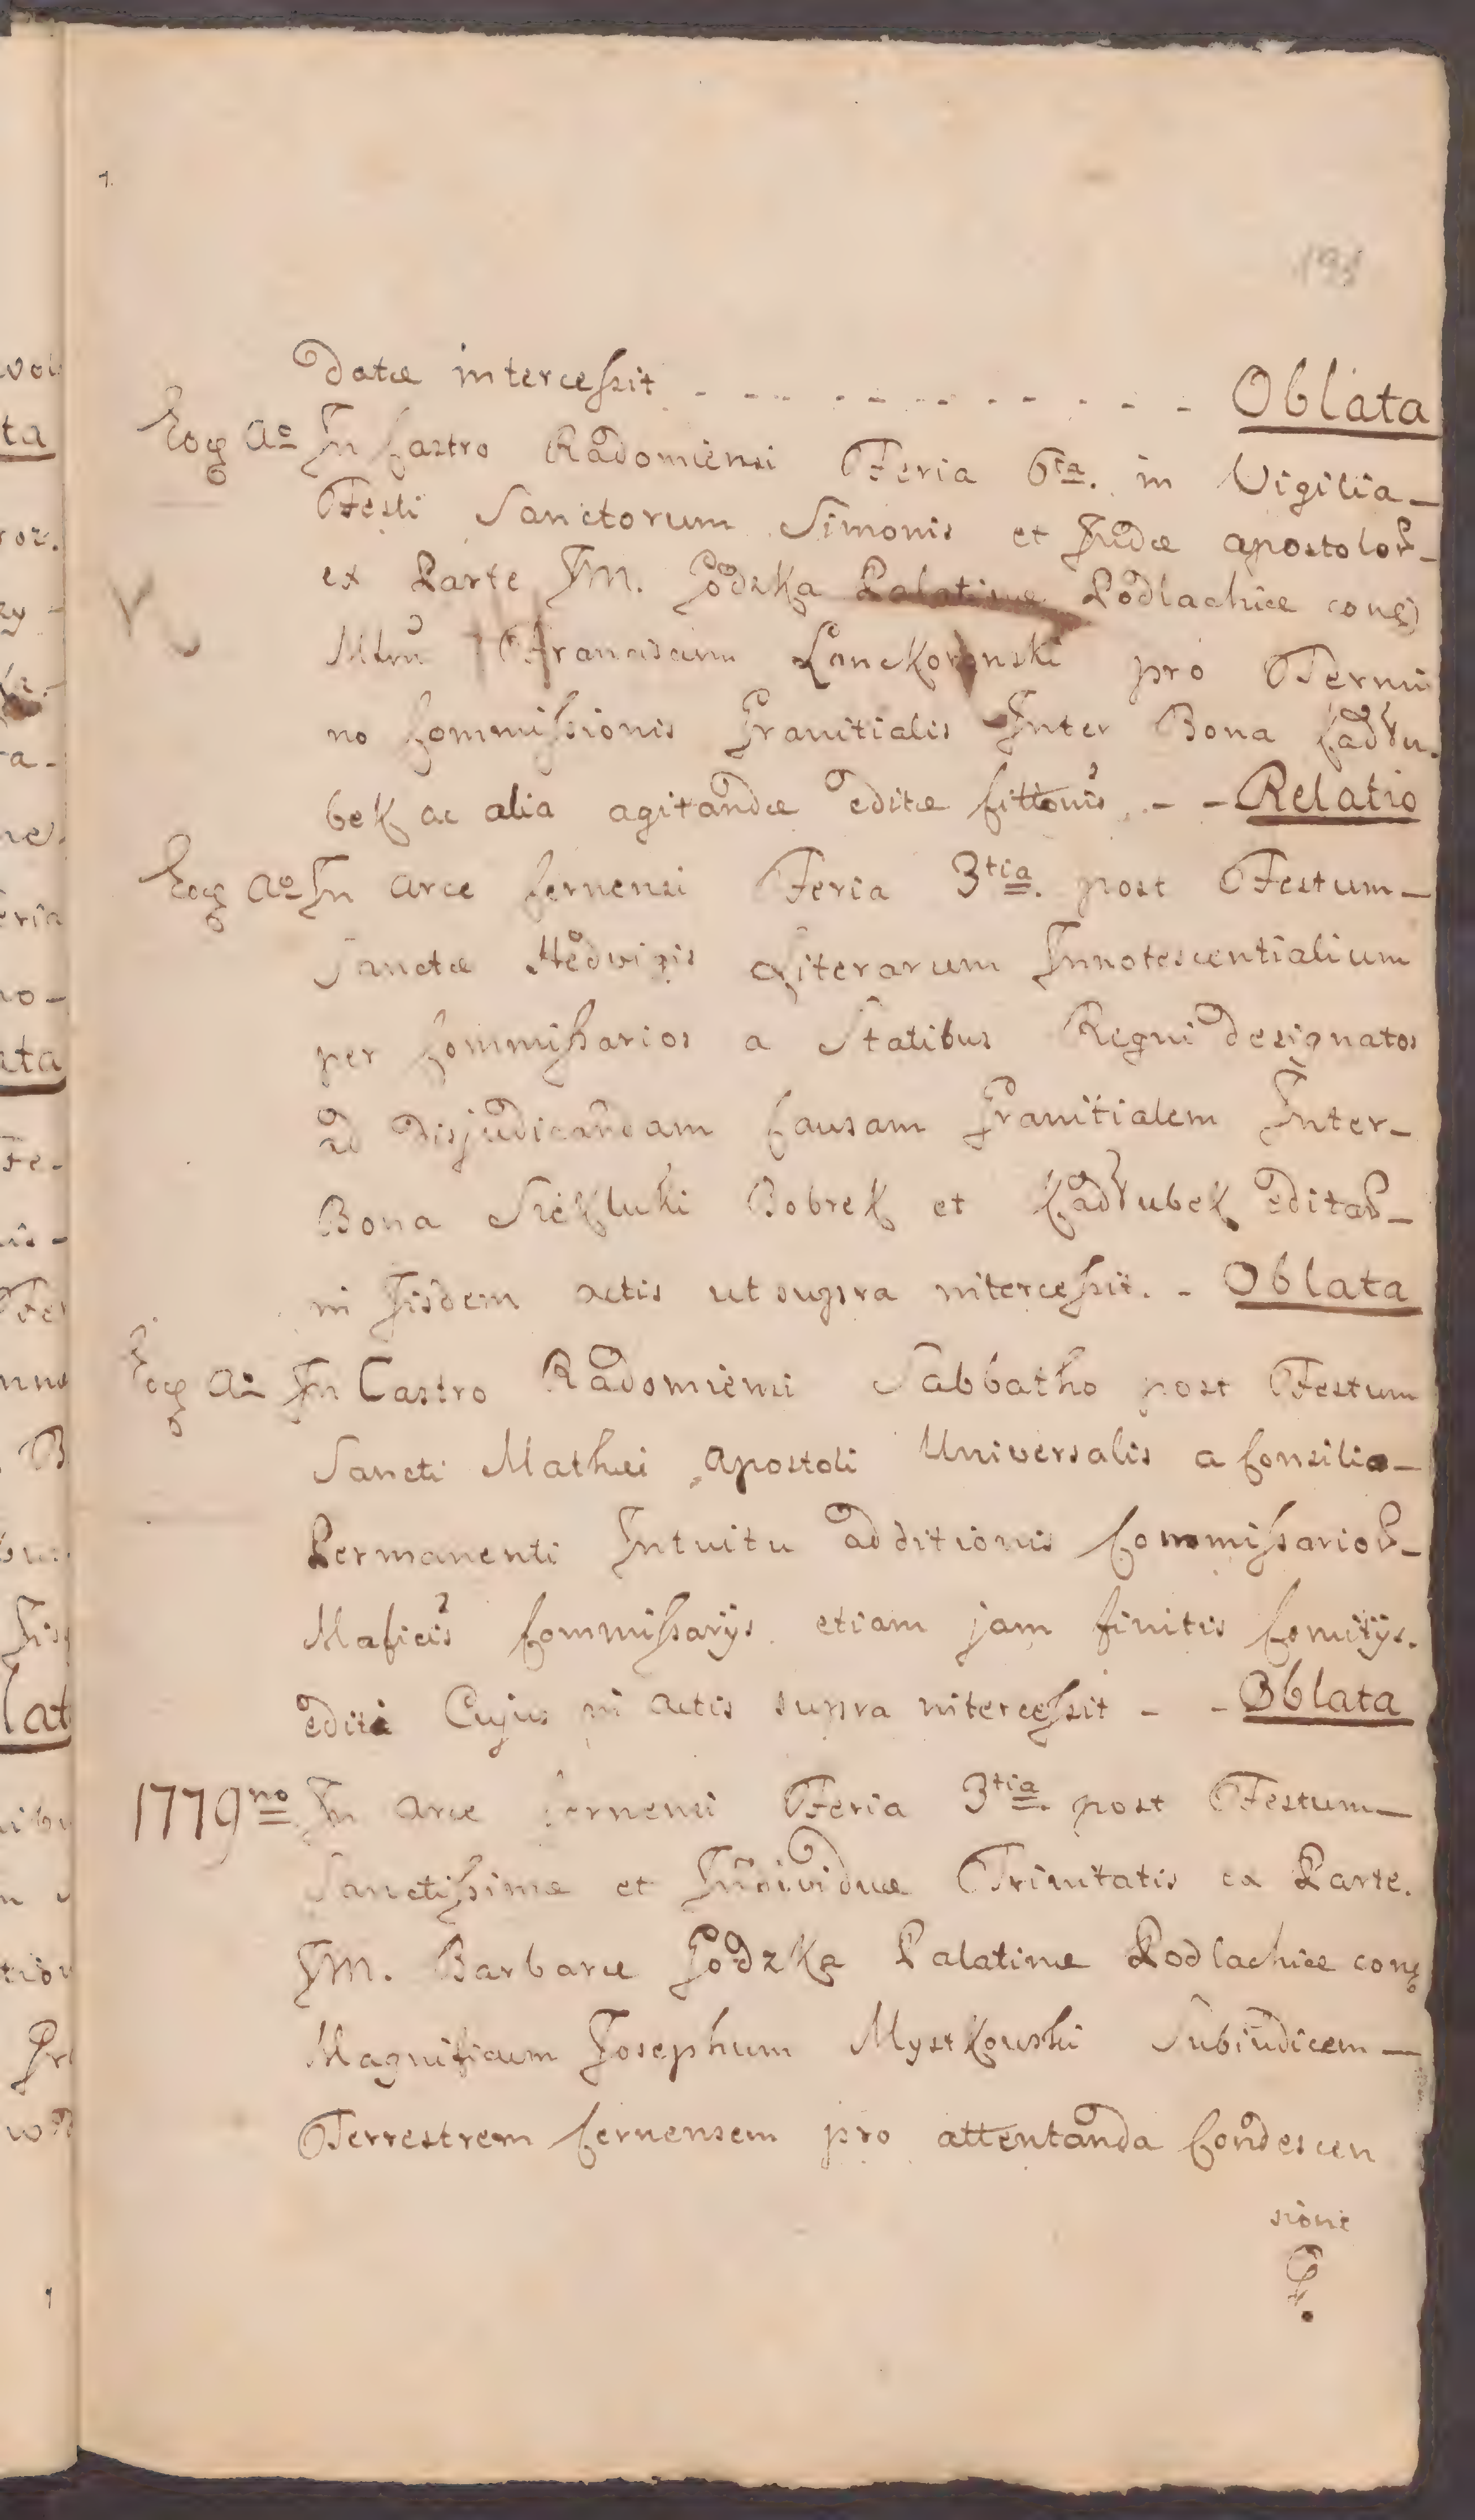 193
Datæ intercessit - - - - - - - - - - - Oblata
Eoq Ao In Castro Radomiensi Feria 6ta. in Vigilia -
Festi Sanctorum Simonis et Judæ apostolor -
ex Parte JM. Godzka Palatinæ Podlachiæ conq
Mlnu Franciscum Lanckoronski pro Termi
no Commissionis Granitialis Inter Bona Kadłu
bek ac alia agitandæ editæ Cittonis. - - Relatio
Eoq Ao In arce Cernensi Feria 3tia. post Festum -
Sanctæ Hedvigis Literarum Innotescentialium
per Commissarios a Statibus Regni designatos
ad Disjudicandam Causam Granitialem Inter -
Bona Siekluki Bobrek et Kadłubek editar -
in Iisdem actis ut supra intercessit. - Oblata
Eoq Ao In Castro Radomiensi Sabbatho post Festum
Sancti Mathæi apostoli Universalis a Consilio -
Permanenti Intuitu additionis Commissarior -
Maficis Commissarijs etiam jam finitis Comitijs.
editi Cujus in actis supra intercessit - - Oblata
1779no In arce Cernensi Feria 3tia. post Festum -
Sanctissimæ et Individuæ Trinitatis ex Parte.
JM. Barbaræ Godzka Palatinæ Podlachiæ conq
Magnificum Josephum Mystkowski Subiudicem -
Terrestrem Cernensem pro attentanda Condescen
sione